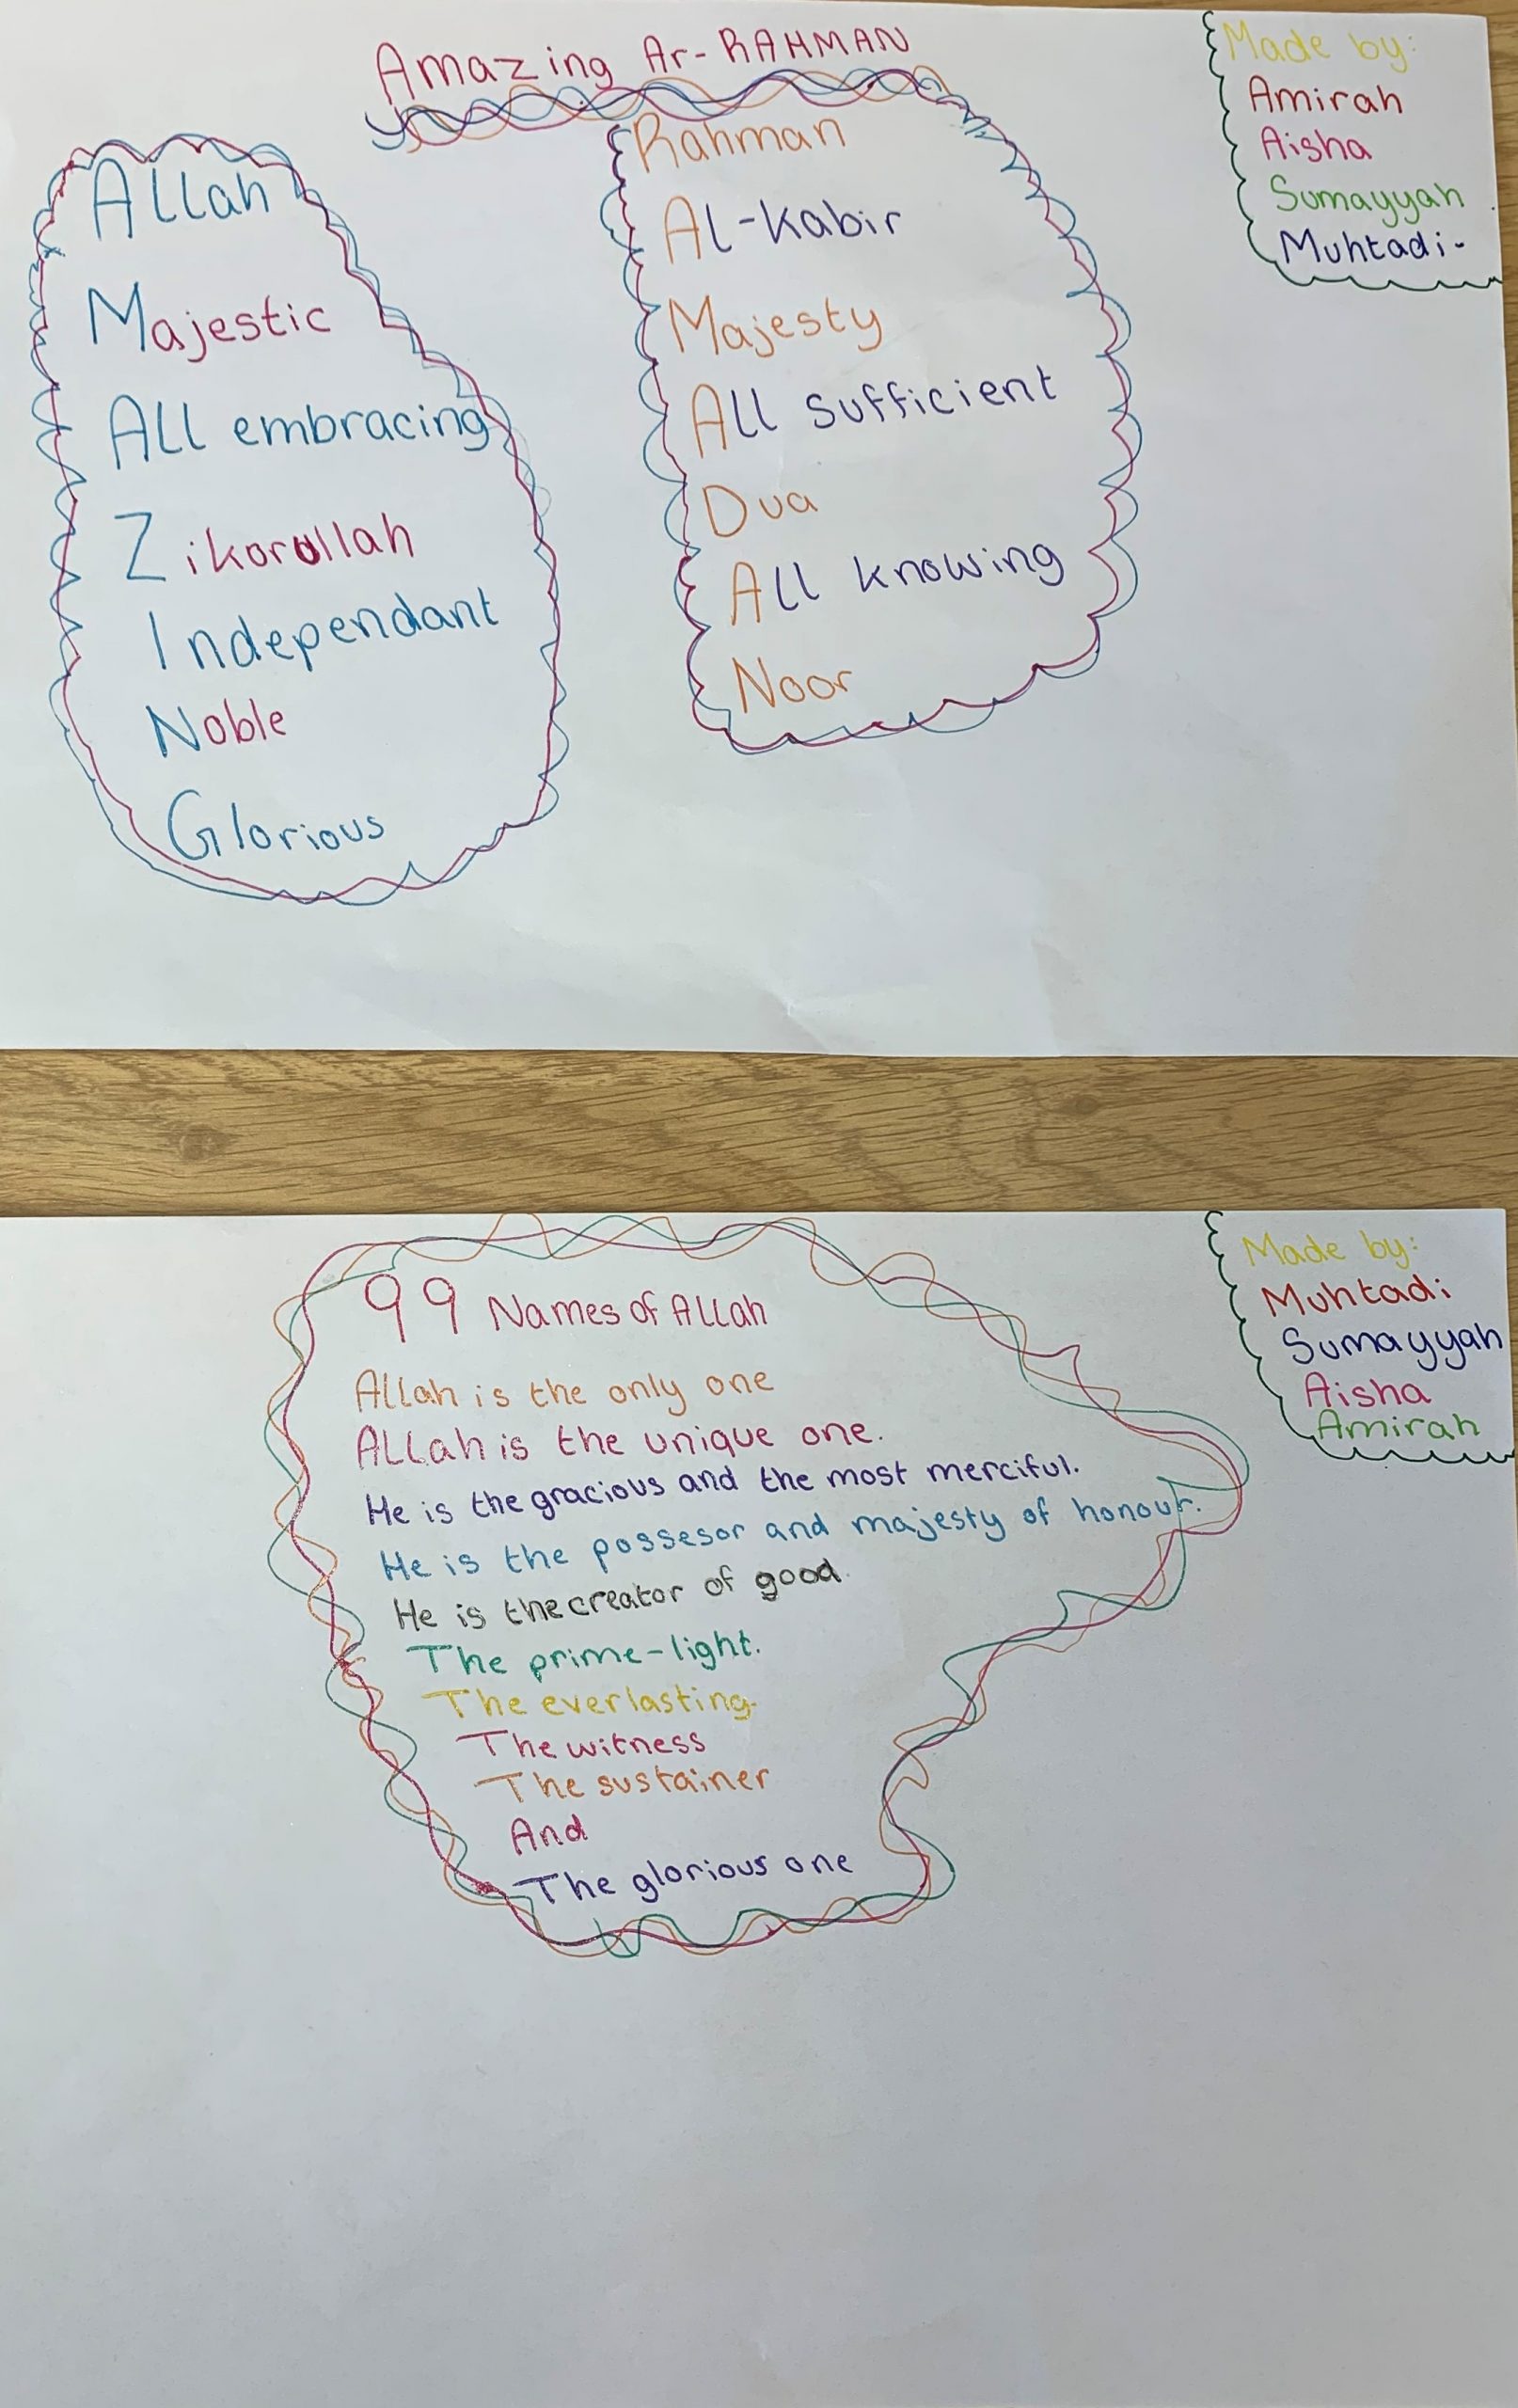 Amazing Ar-RAHMAN
Allah
Majestic
All embracing
Zikorullah
Independant
Noble
Glorious
Rahman
Al-Kabir
Majesty
All sufficient
Dua
All knowing
Noor
Made by:
Amirah
Aisha
Sumayyah
Muhtadi-
99 Names of Allah
Allah is the only one
Allah is the unique one.
He is the gracious and the most merciful.
He is the possesor and majesty of honour.
He is the creator of good.
The prime-light.
The everlasting.
The witness
The sustainer
And
The glorious one
Made by:
Muhtadi
Sumayyah
Aisha
Amirah